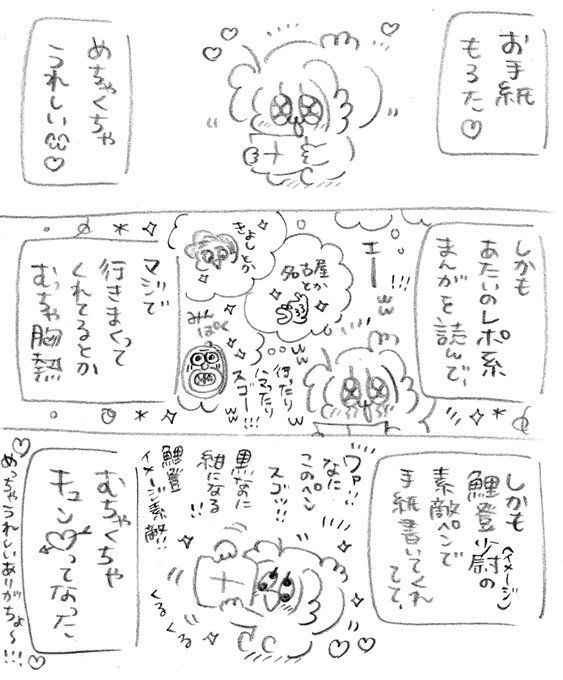 お手紙
もろた♡
めちゃくちゃ
うれしい♡
しかも
あたいのレポ系
まんがを読んで、
エーーww!!!
名古屋
とか
きよしとか
みんぱく
行ったり
ハマったり
スゴー!!!
ww
ww
マジで
行きまくって
くれてるとか
むっちゃ胸熱
しかも
鯉登少尉の
(イメージ)
素敵ペンで
手紙書いてくれ
てて、
ワァ!!
なに
このペン
スゴッ!!
黒なのに
紺になる
!!
鯉登
イメージ素敵!!
くるくる
むちゃくちゃ
キュン♡ってなった
めっちゃうれしいありがちょ〜!!!♡